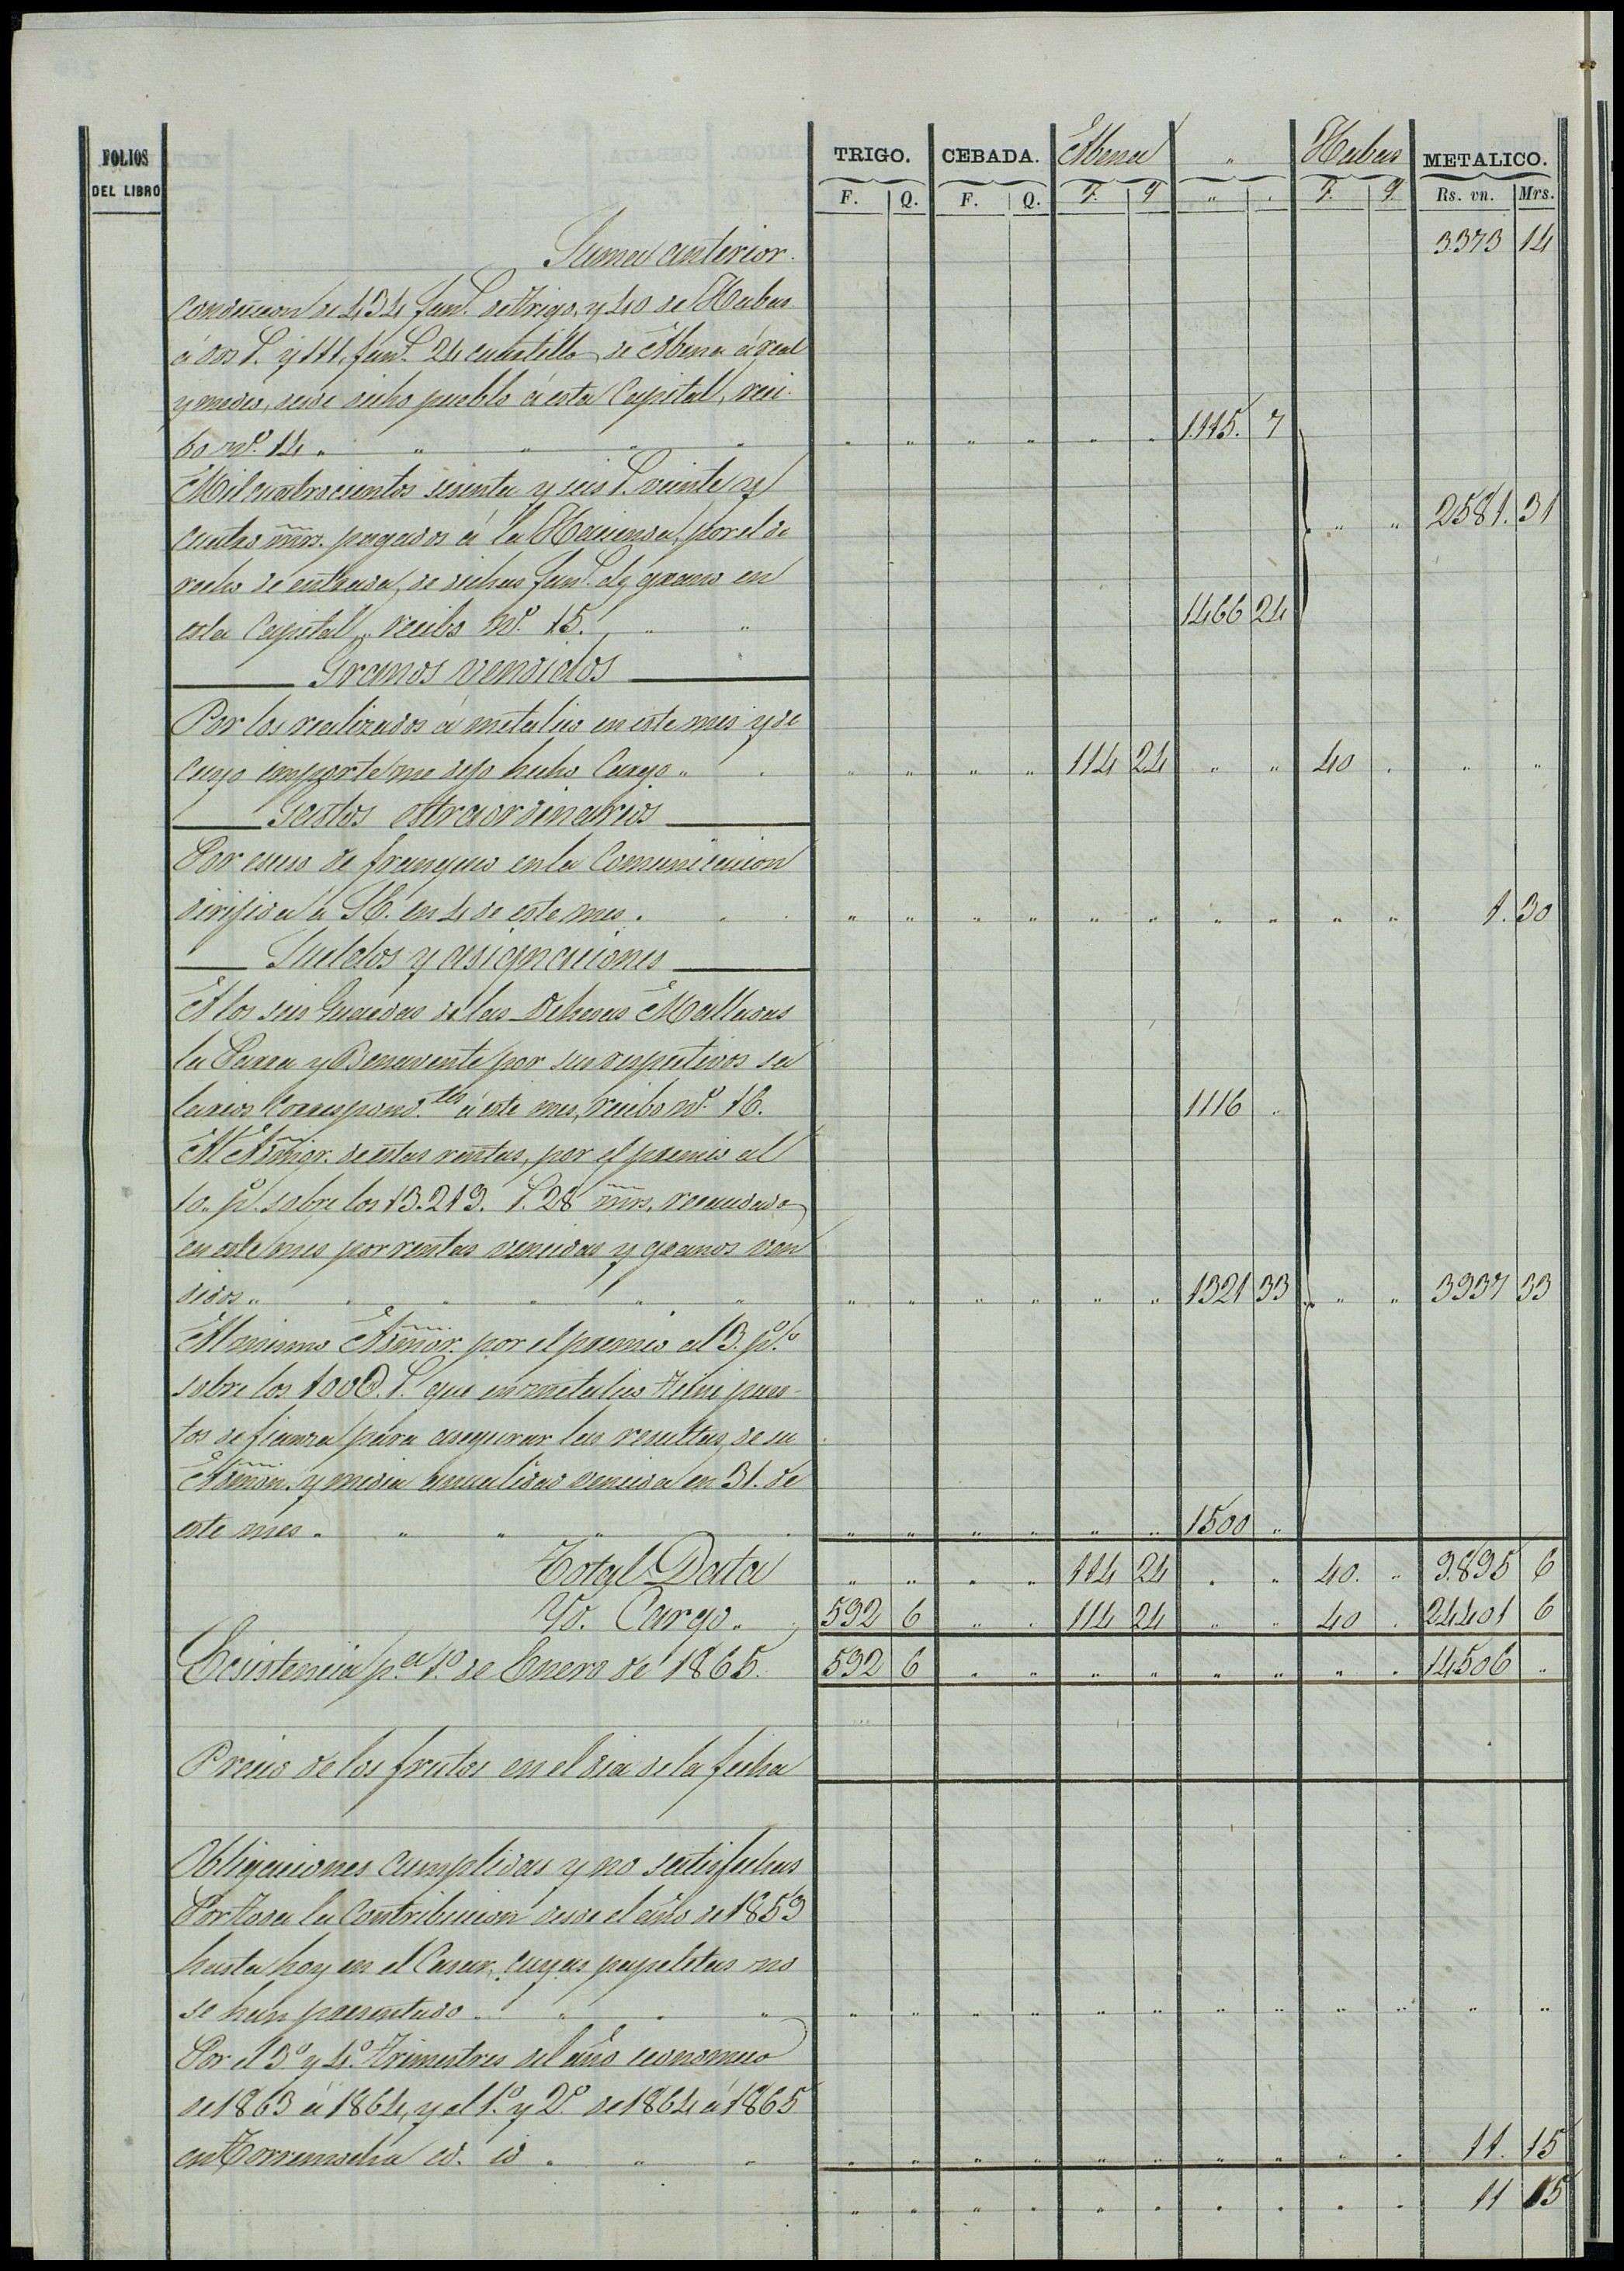 FOLIOS DEL LIBRO TRIGO. CEBADA. Abena " Habas METALICO.
F. Q. F. Q. F. q " " F. q. Rs. vn. Mrs.
Suma anterior. 3373 14
Conduccion de 434 fan.s de trigo, y 40 de Habas
á dos r.s y 114 fan.s 24 cuartillos de Abena á real
y medio, desde dicho pueblo á esta Capital, reci-
bo nº. 14 " " " " " " " " " " 1.115. 7
Mil cuatrocientos sesenta y seis r.s veinte y
cuatro mrs. pagados á la Hacienda, por el de " " 2581. 31
recho de entrada, de dichas fan.s de grano en
esta Capital, recibo nº. 15. " " 1466 24
Granos vendidos
Por los realizados á metalico en este mes y de
cuyo importe me dejo hecho Cargo " " " " " " 114 24 " " 40 " " "
Gastos estraordinarios
Por esceso de franqueo en la Comunicacion
dirijida á S.E. en 4 de este mes " " " " " " " " " " " " 1. 30
Sueldos y asignaciones
A los seis Guardas de las Dehesas Malladas
la Parra y Benavente por sus respectivos sa
larios correspond.tes á este mes, recibo nº. 16. 1116 "
Al Admor. de estas rentas, por el premio al
10. p% sobre los 13.219. r.s 28 mrs, recaudado
en este mes por rentas vencidas y granos ven
didos " " " " " " " " " " " " 1321 33 " " 3937 33
Al mismo Admor. por el premio al 3. p%
sobre los 100@. r.s que en metalico tiene pues-
tos de fianza para asegurar las resultas de su
Admon. y media anualidad vencida en 31. de
este mes " " " " " " " " " " 1500 "
Total Data " " " " 114 24 " " 40. " 9.895 6
Yd. Cargo " 592 6 " " 114 24 " " 40 " 24401 6
Ecsistencia p.a 1º de Enero de 1865. 592 6 " " " " " " " " 14506 "
Precio de los frutos en el dia de la fecha
Obligaciones cumplidas y no satisfechas
Por toda la Contribucion desde el año de 1859
hasta hoy en el Casar, cuyas papeletas no
se han presentado " " " " " " " " " " " " " " "
Por el 3º y 4º. trimestres del año economico
de 1863 á 1864, y el 1º. y 2º. de 1864 á 1865
en Torremocha id. id " " " " " " " " " " " " " 11. 15
" " " " " " " " " " 11 15